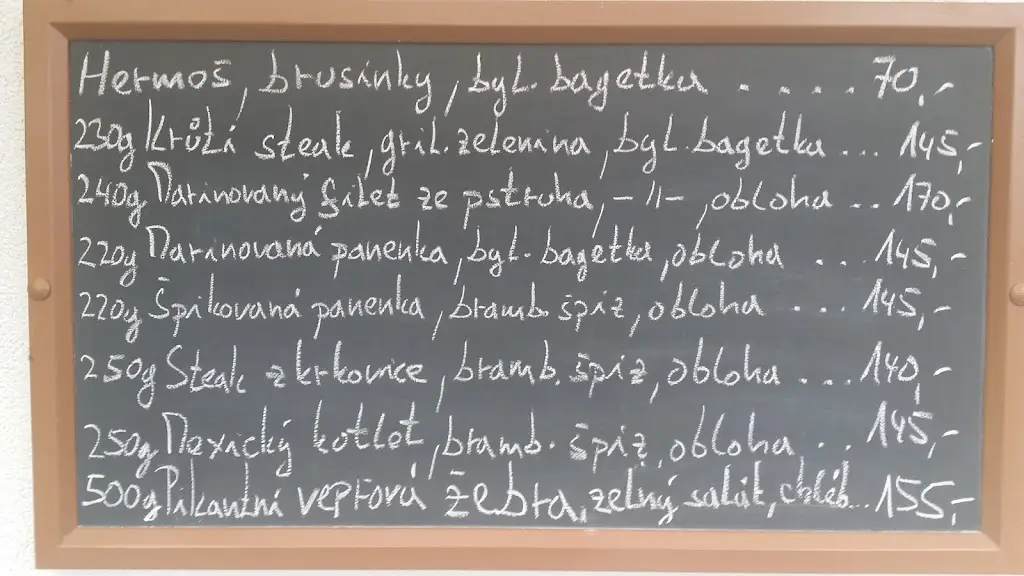 Hermoš, brusinky, byl. bagetka . . . . . 70,-
230g Krůtí steak, gril. zelenina, byl. bagetka ... 145,-
240g Marinovaný filet ze pstruha, -11-, obloha .. 170,-
220g Marinovaná panenka, byl. bagetka, obloha ... 145,-
220g Špikovaná panenka, bramb. špíz, obloha ... 145,-
250g Steak z krkovice, bramb. špíz, obloha ... 140,-
250g Mexický kotlet, bramb. špíz, obloha .. 145,-
500g Pikantní vepřová žebra, zelný salát, chléb... 155,-